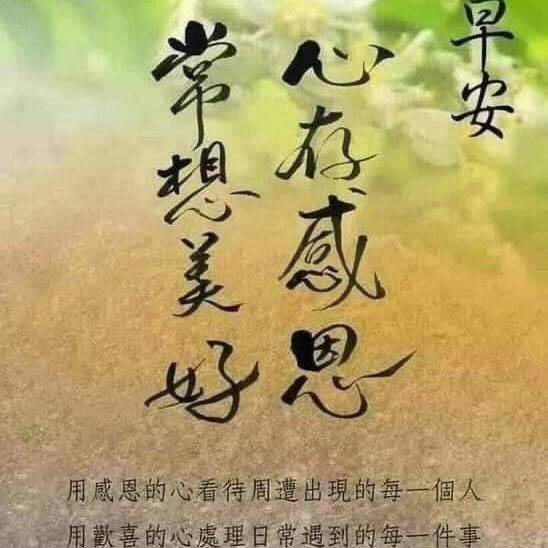 早安
心存感恩
常想美好
用感恩的心看待周遭出現的每一個人
用歡喜的心處理日常遇到的每一件事